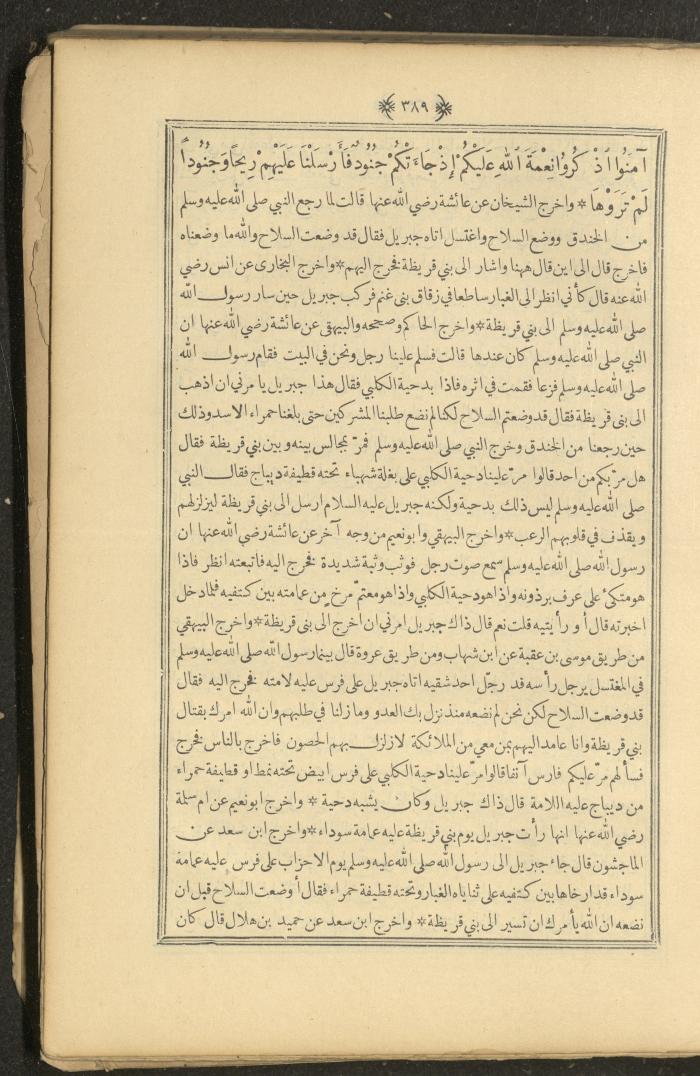 ٣٨٩
آمَنُوا اذْكُرُوا نِعْمَةَ اللهِ عَلَيْكُمْ إِذْ جَاءَتْكُمْ جُنُودٌ فَأَرْسَلْنَا عَلَيْهِمْ رِيحًا وَجُنُودًا
لَمْ تَرَوْهَا * واخرج الشيخان عن عائشة رضي الله عنها قالت لما رجع النبي صلى الله عليه وسلم
من الخندق ووضع السلاح واغتسل اتاه جبريل فقال قد وضعت السلاح والله ما وضعناه
فاخرج قال الى اين قال ههنا واشار الى بني قريظة فخرج اليهم * واخرج البخارى عن انس رضي
الله عنه قال كأني انظر الى الغبار ساطعا في زقاق بنى غنم فركب جبريل حين سار رسول الله
صلى الله عليه وسلم الى بني قريظة * واخرج الحاكم وصححه والبيهقى عن عائشة رضي الله عنها ان
النبي صلى الله عليه وسلم كان عندها قالت فسلم علينا رجل ونحن في البيت فقام رسول الله
صلى الله عليه وسلم فزعا فقمت في اثره فاذا بدحية الكلبي فقال هذا جبريل يامرني ان اذهب
الى بنى قريظة فقال قد وضعتم السلاح لكنا لم نضع طلبنا المشركين حتى بلغنا حمراء الاسد وذلك
حين رجعنا من الخندق وخرج النبي صلى الله عليه وسلم فمرّ بمجالس بينه وبين بني قريظة فقال
هل مرّ بكم من احد قالوا مرّ علينا دحية الكلبي على بغلة شهباء تحته قطيفة ديباج فقال النبي
صلى الله عليه وسلم ليس ذلك بدحية ولكنه جبريل عليه السلام ارسل الى بني قريظة ليزلزلهم
ويقذف في قلوبهم الرعب * واخرج البيهقي وابونعيم من وجه آخر عن عائشة رضي الله عنها ان
رسول الله صلى الله عليه وسلم سمع صوت رجل فوثب وثبة شديدة فخرج اليه فاتبعته انظر فاذا
هو متكئ على عرف برذونه واذا هو دحية الكلبي واذا هو معتمّ مرخ من عمامته بين كتفيه فلما دخل
اخبرته قال أو رأيتيه قلت نعم قال ذاك جبريل امرني ان اخرج الى بنى قريظة * واخرج البيهقي
من طريق موسى بن عقبة عن ابن شهاب ومن طريق عروة قال بينما رسول الله صلى الله عليه وسلم
في المغتسل يرجل رأسه قد رجّل احد شقيه اتاه جبريل على فرس عليه لامته فخرج اليه فقال
قد وضعت السلاح لكن نحن لم نضعه منذ نزل بك العدو وما زلنا في طلبهم وان الله امرك بقتال
بني قريظة وانا عامد اليهم بمن معي من الملائكة لازلزل بهم الحصون فاخرج بالناس فخرج
فسألهم مرّ عليكم فارس آنفا قالوا مرّ علينا دحية الكلبي على فرس ابيض تحته نمط او قطيفة حمراء
من ديباج عليه اللامة قال ذاك جبريل وكان يشبه دحية * واخرج ابونعيم عن ام سلمة
رضي الله عنها انها رأت جبريل يوم بني قريظة عليه عمامة سوداء * واخرج ابن سعد عن
الماجشون قال جاء جبريل الى رسول الله صلى الله عليه وسلم يوم الاحزاب على فرس عليه عمامة
سوداء قد ارخاها بين كتفيه على ثناياه الغبار وتحته قطيفة حمراء فقال أوضعت السلاح قبل ان
نضعه ان الله يأمرك ان تسير الى بني قريظة * واخرج ابن سعد عن حميد بن هلال قال كان